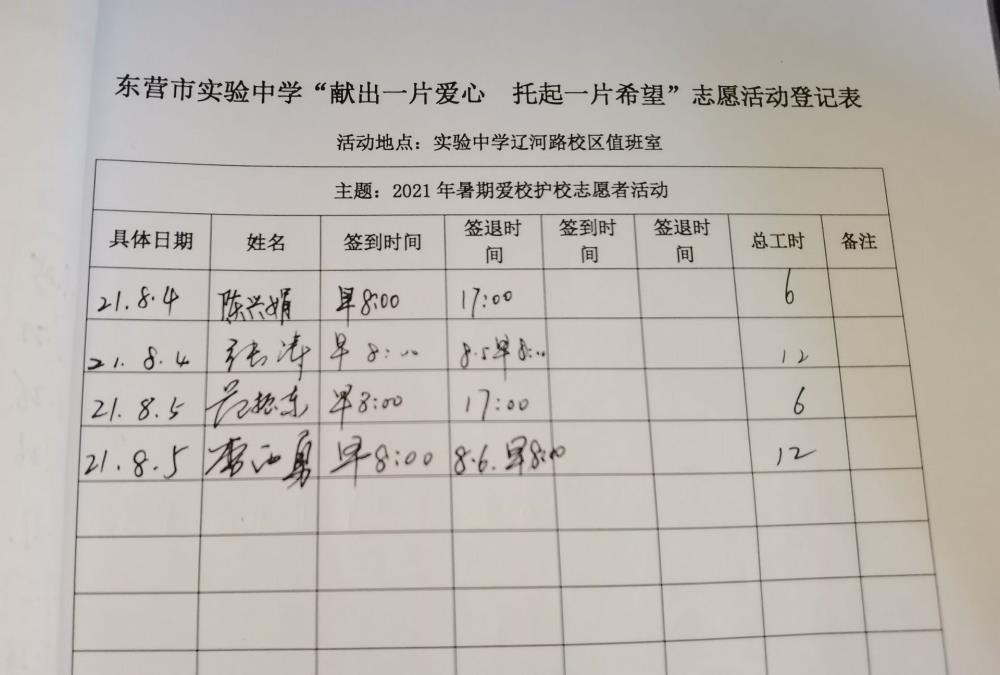 东营市实验中学“献出一片爱心 托起一片希望”志愿活动登记表
活动地点：实验中学辽河路校区值班室
主题：2021年暑期爱校护校志愿者活动
具体日期 姓名 签到时间 签退时间 签到时间 签退时间 总工时 备注
21.8.4 陈兴娟 早8:00 17:00 6
21.8.4 张涛 早8:00 8.5早8:00 12
21.8.5 范振东 早8:00 17:00 6
21.8.5 勇 早8:00 8.6.早8:00 12